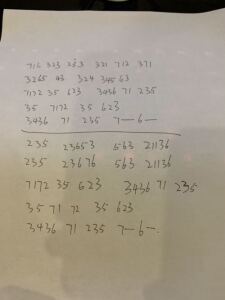 716 323 253 321 712 371
3265 43 324 345 63
7172 35 623 3436 71 235
35 7172 35 623
3436 71 235 7— 6—
235 23653 563 21136
235 23676 563 21136
7172 35 623 3436 71 235
35 71 72 35 623
3436 71 235 7— 6—.